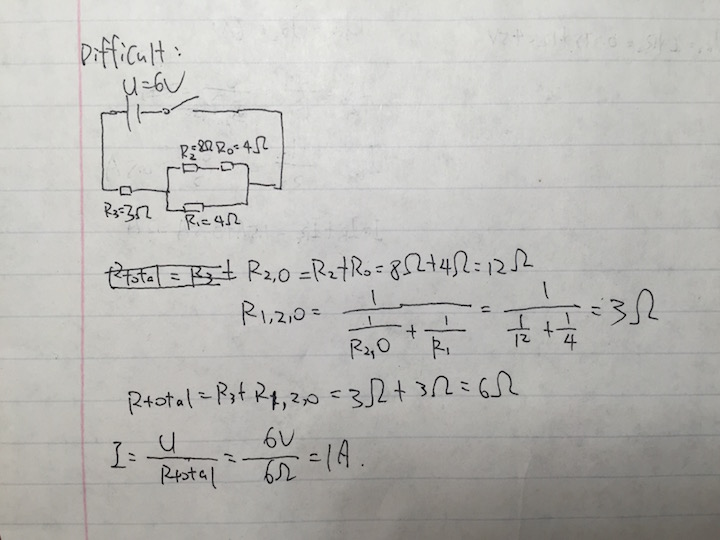 Difficult:
U=6V
R2=8Ω R0=4Ω
R3=3Ω
R1=4Ω
Rtotal = R3+ R2,0 = R2+R0 = 8Ω+4Ω = 12Ω
R1,2,0 = 1/(1/R2,0 + 1/R1) = 1/(1/12 + 1/4) = 3Ω
Rtotal = R3+R1,2,0 = 3Ω+3Ω = 6Ω
I = U/Rtotal = 6V/6Ω = 1A.